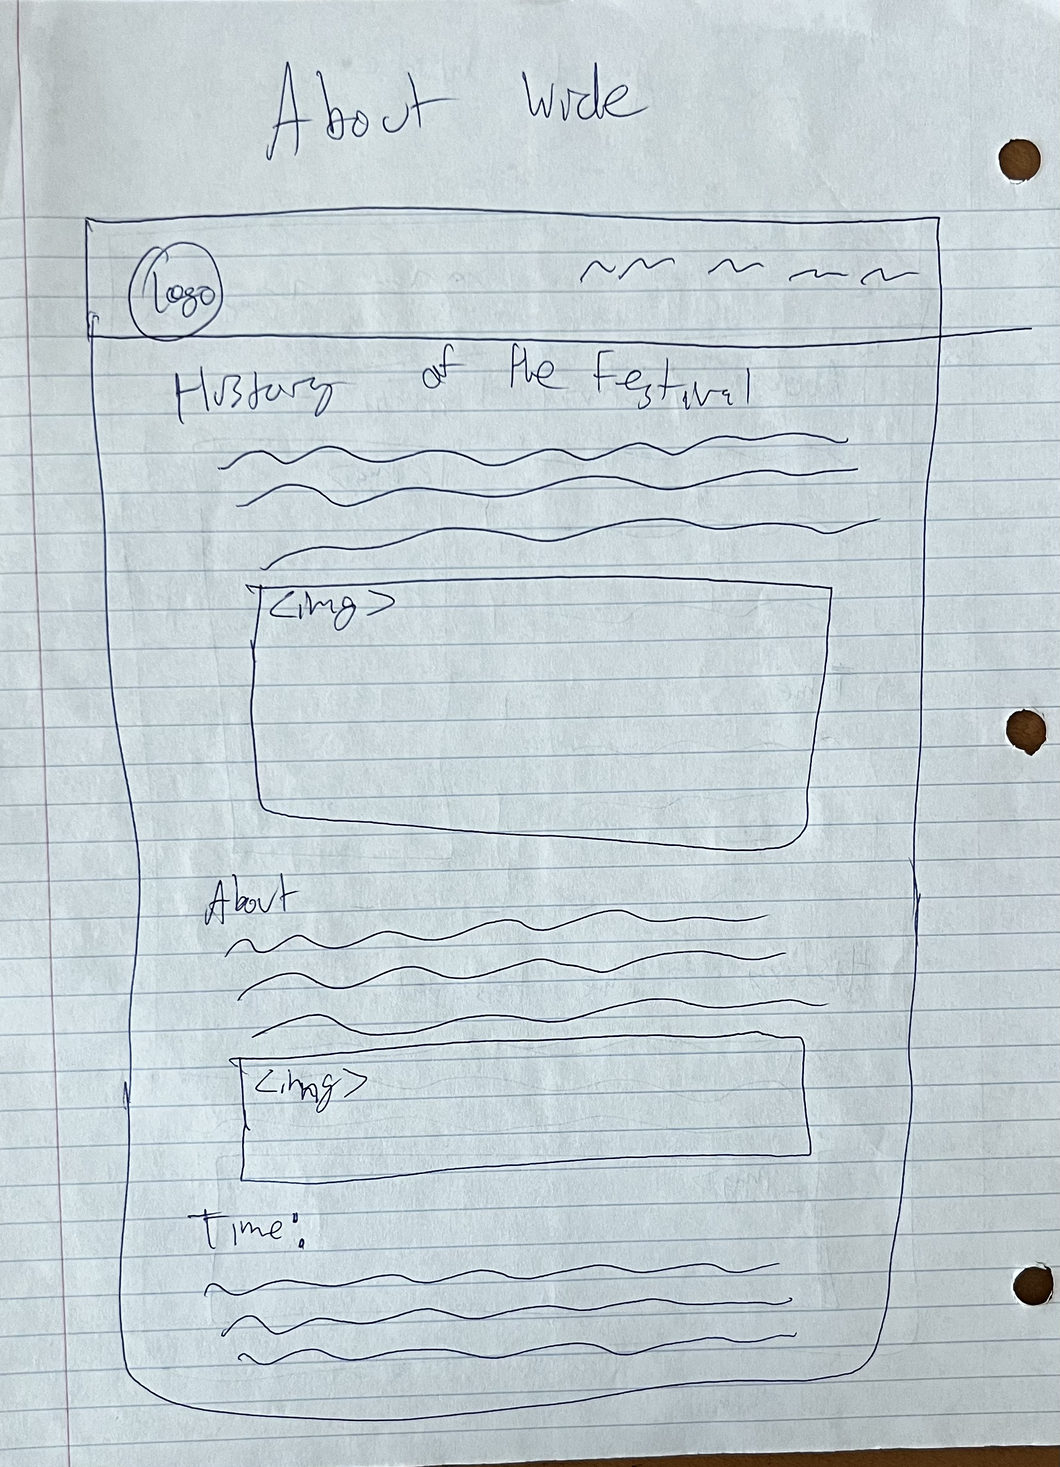 About Wide
Logo
History of the Festival
<img>
About
<img>
Time: